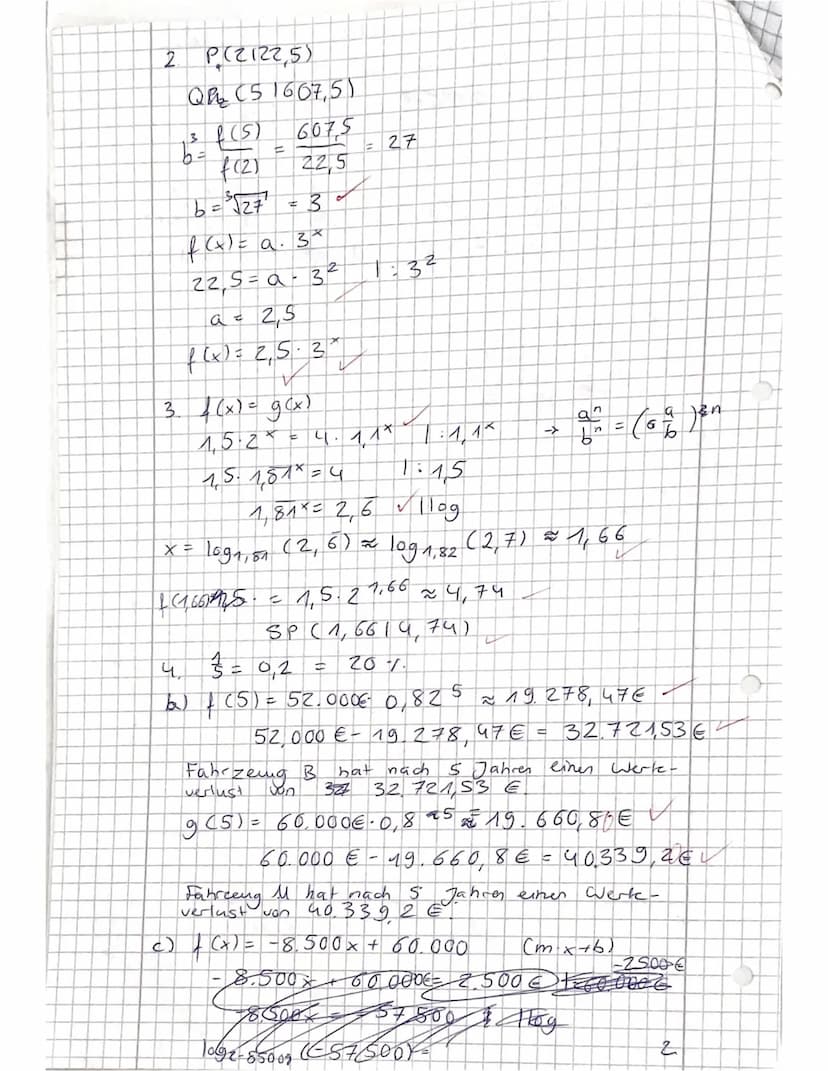 2 P₁(2|22,5)
QP₂(5|607,5)
b³ = f(5)/f(2) = 607,5/22,5 = 27
b = ³√27 = 3
f(x) = a · 3ˣ
22,5 = a · 3² | : 3²
a = 2,5
f(x) = 2,5 · 3ˣ
3. f(x) = g(x)
1,5 · 2ˣ = 4 · 1,1ˣ | : 1,1ˣ → aⁿ/bⁿ = (a/b)ⁿ
1,5 · 1,8̅1̅ˣ = 4 | : 1,5
1,8̅1̅ˣ = 2,6̅ | log
x = log₁,₈₁ (2,6̅) ≈ log₁,₈₂ (2,7) ≈ 1,66
f(1,66) = 1,5 · 2^1,66 ≈ 4,74
SP (1,66|4,74)
4. 1/5 = 0,2 = 20 %
b) f(5) = 52.000€ · 0,82⁵ ≈ 19.278,47€
52,000 € - 19.278,47€ = 32.721,53 €
Fahrzeug B hat nach 5 Jahren einen Werk-
verlust von 32.721,53 €.
g(5) = 60.000€ · 0,8⁵ = 19.660,8€
60.000 € - 19.660,8€ = 40.339,2€
Fahrzeug M hat nach 5 Jahren einen Werk-
verlust von 40.339,2 €.
c) f(x) = -8.500x + 60.000 (m·x+b)
-2500€
-8.500x + 60.000€ = 2.500€
-8.500x = -57.500 | log
(-57.500) =
2